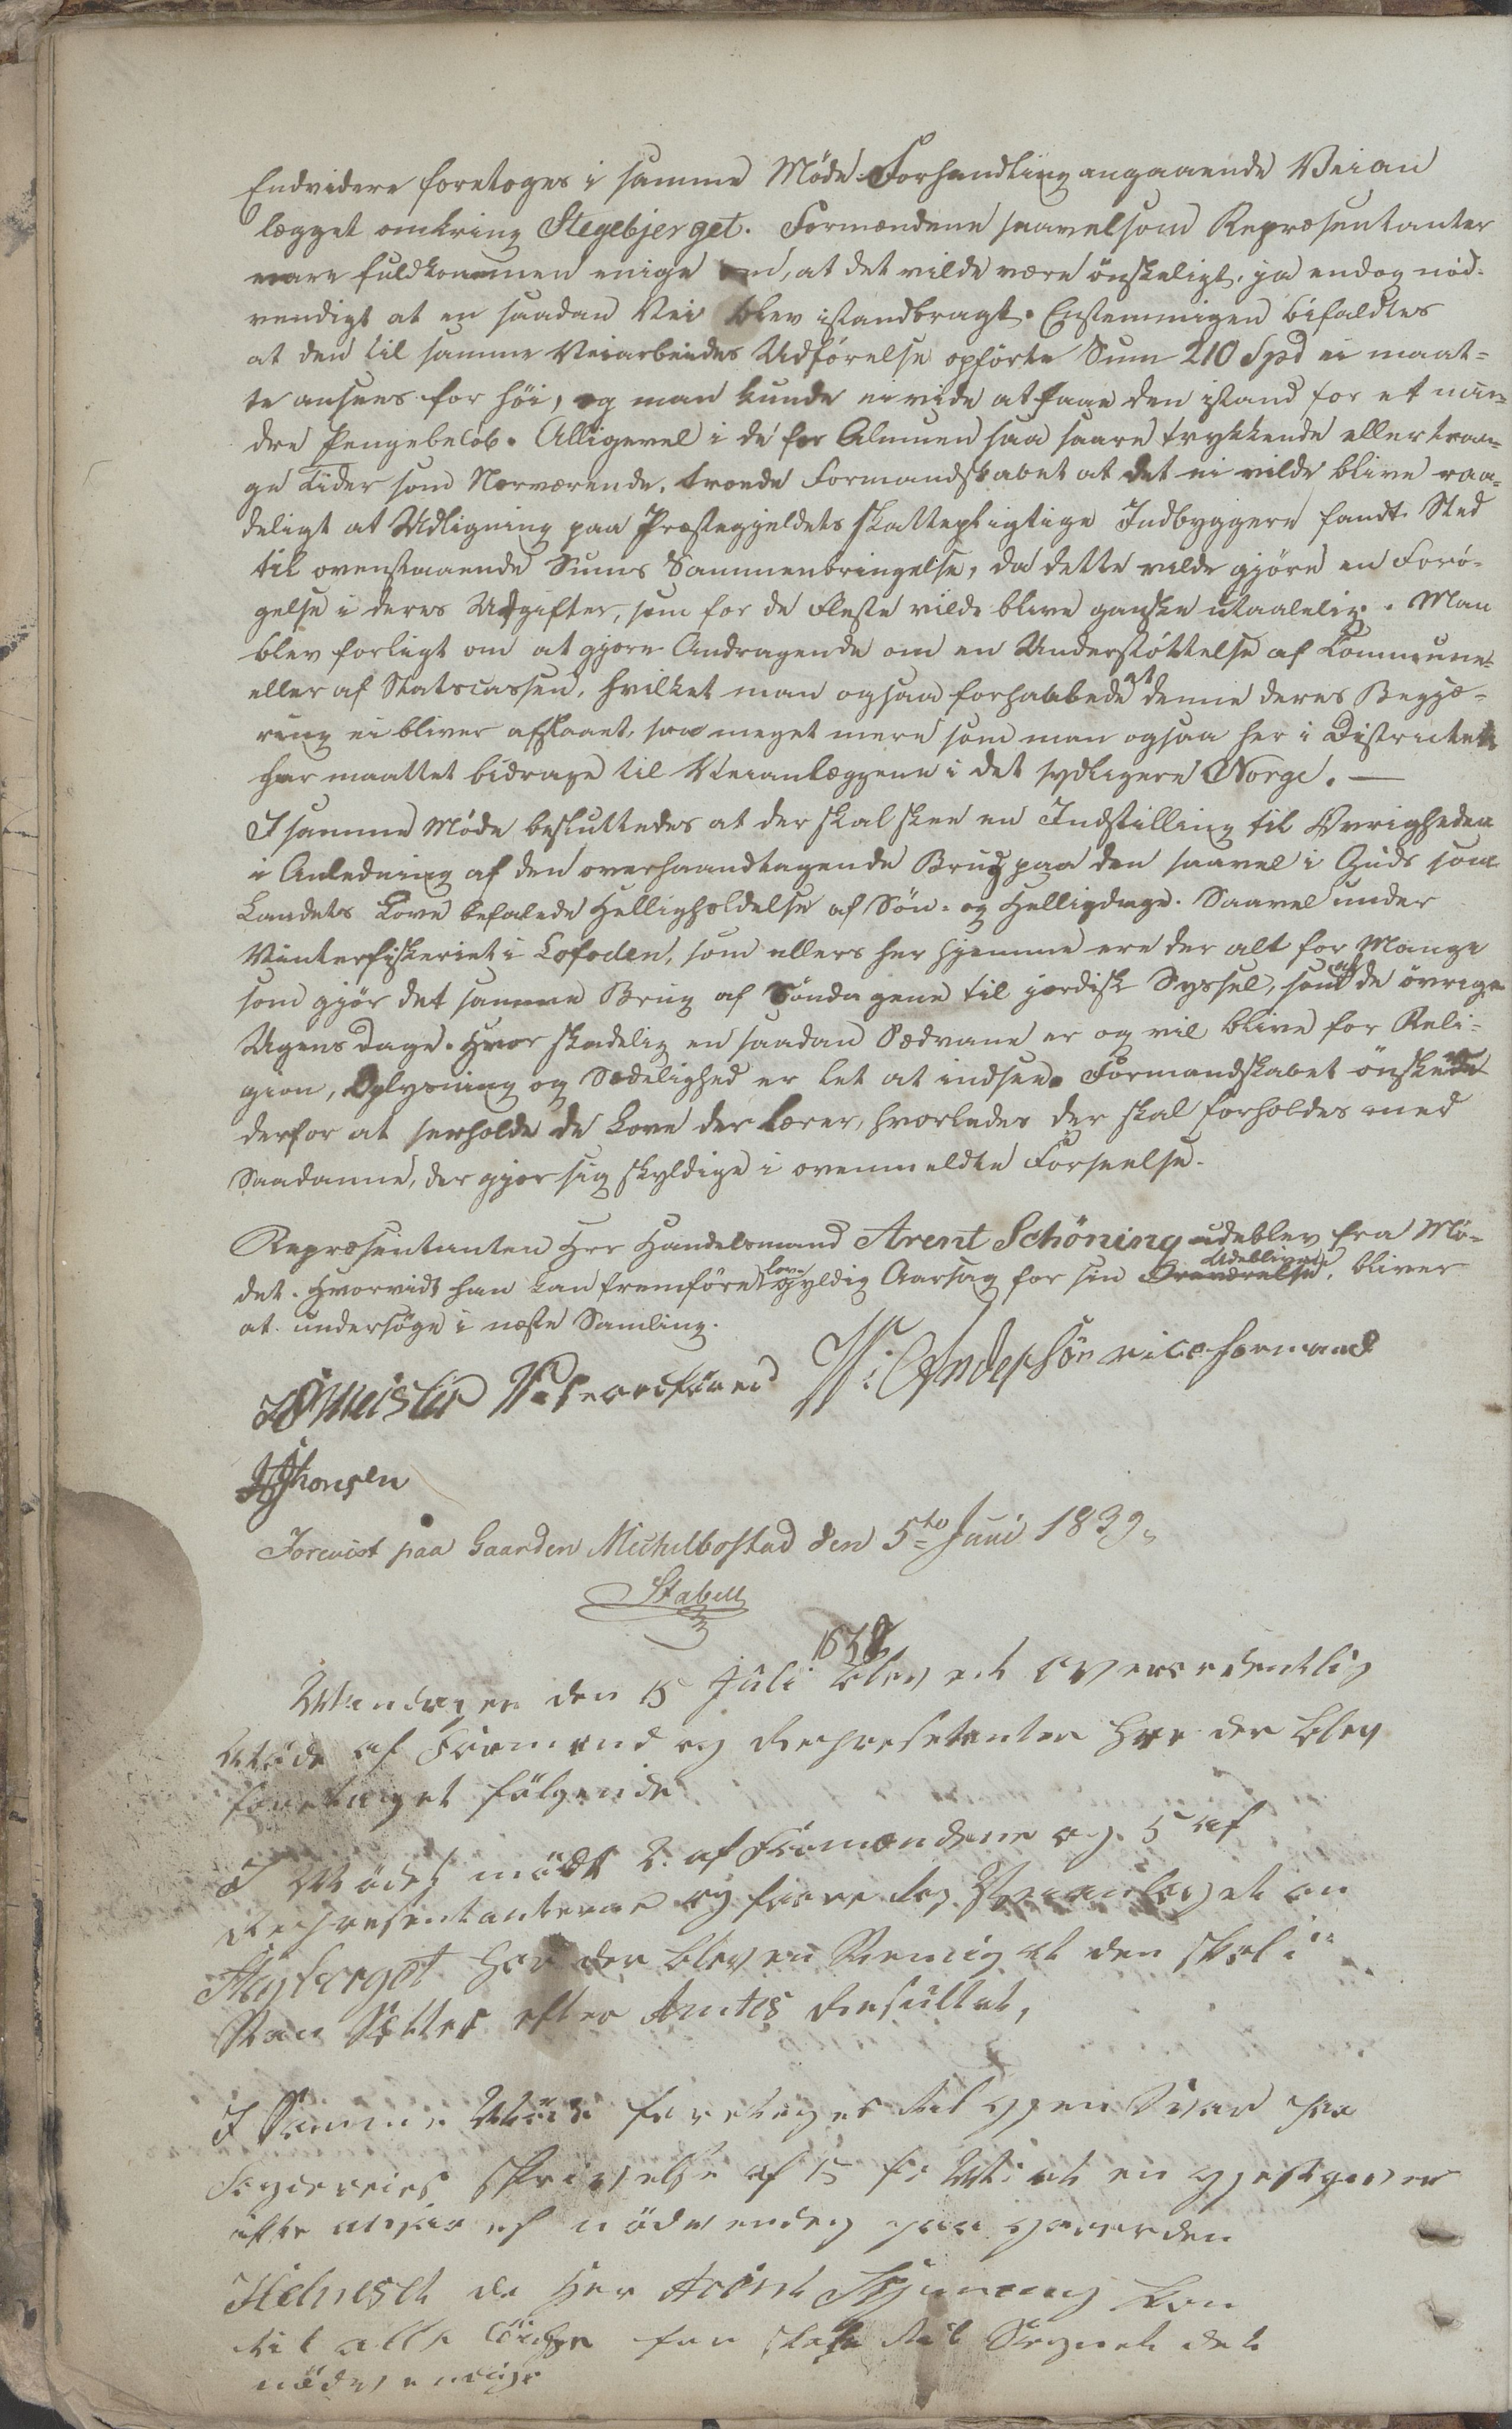 Endvidere foretoges i samme Møde Forhandling angaaende Veian
lægget omkring Stegebjerget. Formændene saavelsom Repræsentanter
vare fuldkommen enige om, at det vilde være ønskeligt, ja endog nød-
vendigt at en saadan Vei blev istandbragt. Enstemmigen bifaldtes
at den til samme Veiarbeides Udførelse opførte Sum 210 Spd ei maat-
te ansees for høi, og man kunde ei vide at faae den istand for et min-
dre Pengebeløb. Alligevel i de for Almuen saa saare trykkende eller tran-
ge Tider som Nærværende, troede Formandskabet at det ei vilde blive raa-
deligt at Udligning paa Præstegjeldets skattepligtige Indbyggere fandt Sted
til ovenstaaende Sums Sammenbringelse, da dette vilde gjøre en Forø-
gelse i deres Udgifter, som for de Fleste vilde blive ganske utaalelig. Man
blev forligt om at gjøre Andragende om en Understøttelse af Commune-
eller af Statscassen, hvilket man ogsaa forhaabede at denne deres Begjæ-
ring ei bliver afslaaet, saa meget mere som man ogsaa her i Districtet
har maattet bidrage til Veianlæggene i det sydligere Norge. —
I samme Møde besluttedes at der skal skee en Indstilling til Øvrigheden
i Anledning af den overhaandtagende Brug paa den saavel i Guds som
Landets Love befalede Helligholdelse af Søn- og Helligdage. Saavel under
Vinterfiskeriet i Lofoden, som ellers her hjemme ere der alt for Mange
som gjør det samme Brug af Søndagene til jordisk Syssel, som af de øvrige
Ugens Dage. Hvor skadelig en saadan Sædvane er og vil blive for Reli-
gion, Oplysning og Sædelighed er let at indsee. Formandskabet ønskede
derfor at erholde de Love der lærer, hvorledes der skal forholdes med
Saadanne, der gjør sig skyldige i ovenmeldte Forseelse.
Repræsentanten Hr Handelsmand Arent Schöning udeblev fra Mø-
det. Hvorvidt han kan fremføre lovgyldig Aarsag for sin Udeblivelse, bliver
at undersøge i næste Samling.
Meisler Ordfører H: Andersön viceformand
Thonsen
Forevist paa Gaarden Michelbostad den 5te Juni 1839.
Stabell
Mandagen den 15 Juli 1838 blev et Overordentlig
Møde af Formænd og Representanter hvor der blev
foretaget følgende
I Mødet mødt 2 af Formændene og 5 af
Representanterne og foretog Veianlæget om
Stegberget hvor der blev en Stemig at den skal i
Stan Settes efter Amtes Resultat,
I Samme Møde foretoges til gjen Svar paa
Fogderies Skrivelse af 15 at en gjestgiver
ikke ansees nødvendig paa Gaarden
da Her Arent Skjøning kan
til alle for skafe til Segnet det
nødvendige